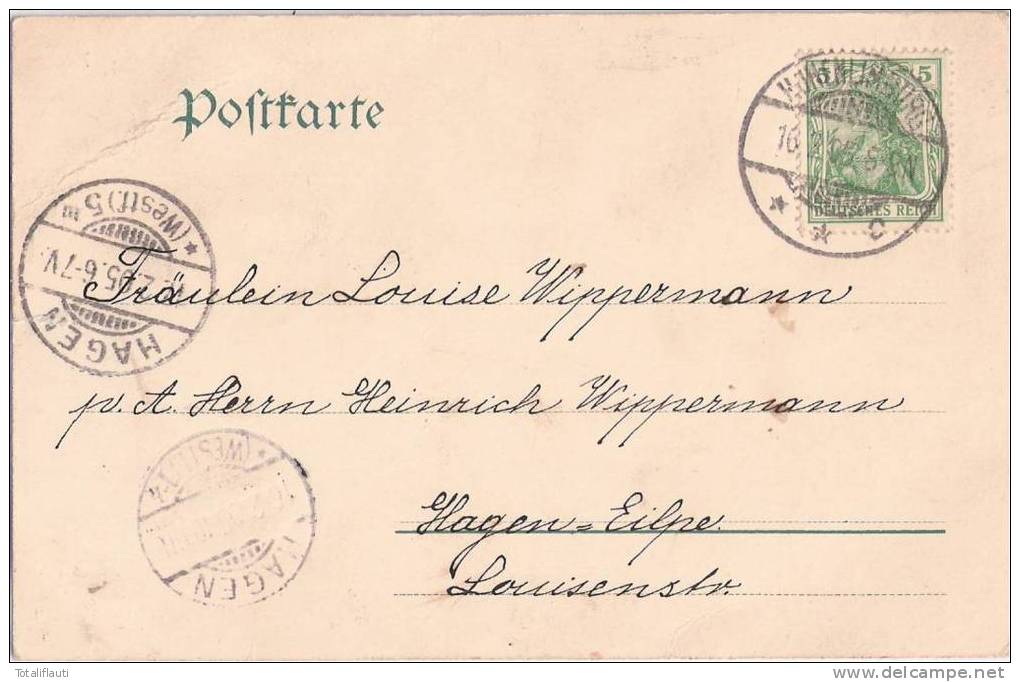 Postkarte
5
DEUTSCHES REICH
c
* (Westf.) 5 w
2.05.6-7V.
HAGEN
Fräulein Louise Wippermann
p. A. Herrn Heinrich Wippermann
* (WESTF.) 4
HAGEN
Hagen=Eilpe.
Louisenstr.
Totaliflauti
www.delcampe.net